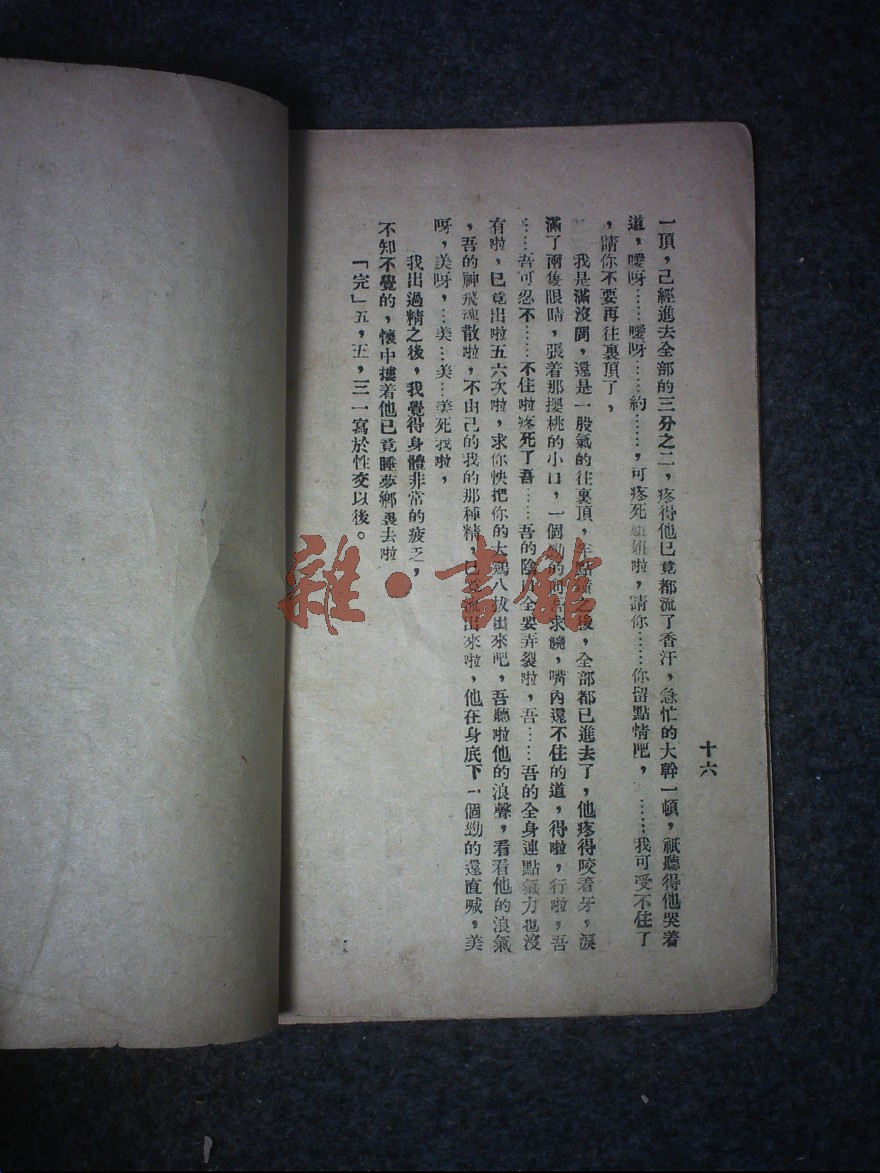 十六
一頂，己經進去全部的三分之二，疼得他已竟都流了香汗，急忙的大幹一頓，祇聽得他哭着
道，噯呀……噯呀……約……，可疼死姐姐啦，請你……你留點情吧，……我可受不住了
，請你不要再往裏頂了，
我是滿沒聞，還是一股氣的往裏頂，之後，全部都已進去了，他疼得咬着牙，淚
滿了兩隻眼睛，張着那櫻桃的小口，一個勁的求饒，嘴內還不住的道，得啦，行啦，吾
……吾可忍不……不住啦疼死了吾……吾的陰全要弄裂啦，吾……吾的全身連點氣力也沒
有啦，已竟出啦五六次啦，求你快把你的大鷄八拔出來吧，吾聽啦他的浪聲，看看他的浪氣
，吾的神飛魂散啦，不由己的我的那種精，已出來啦，他在身底下一個勁的還直喊，美
呀，美呀，…美…美…美死我啦，
我出過精之後，我覺得身體非常的疲乏，
不知不覺的，懷中摟着他已竟睡夢鄉裏去啦
「完」五，五，三一寫於性交以後。
雜·書館